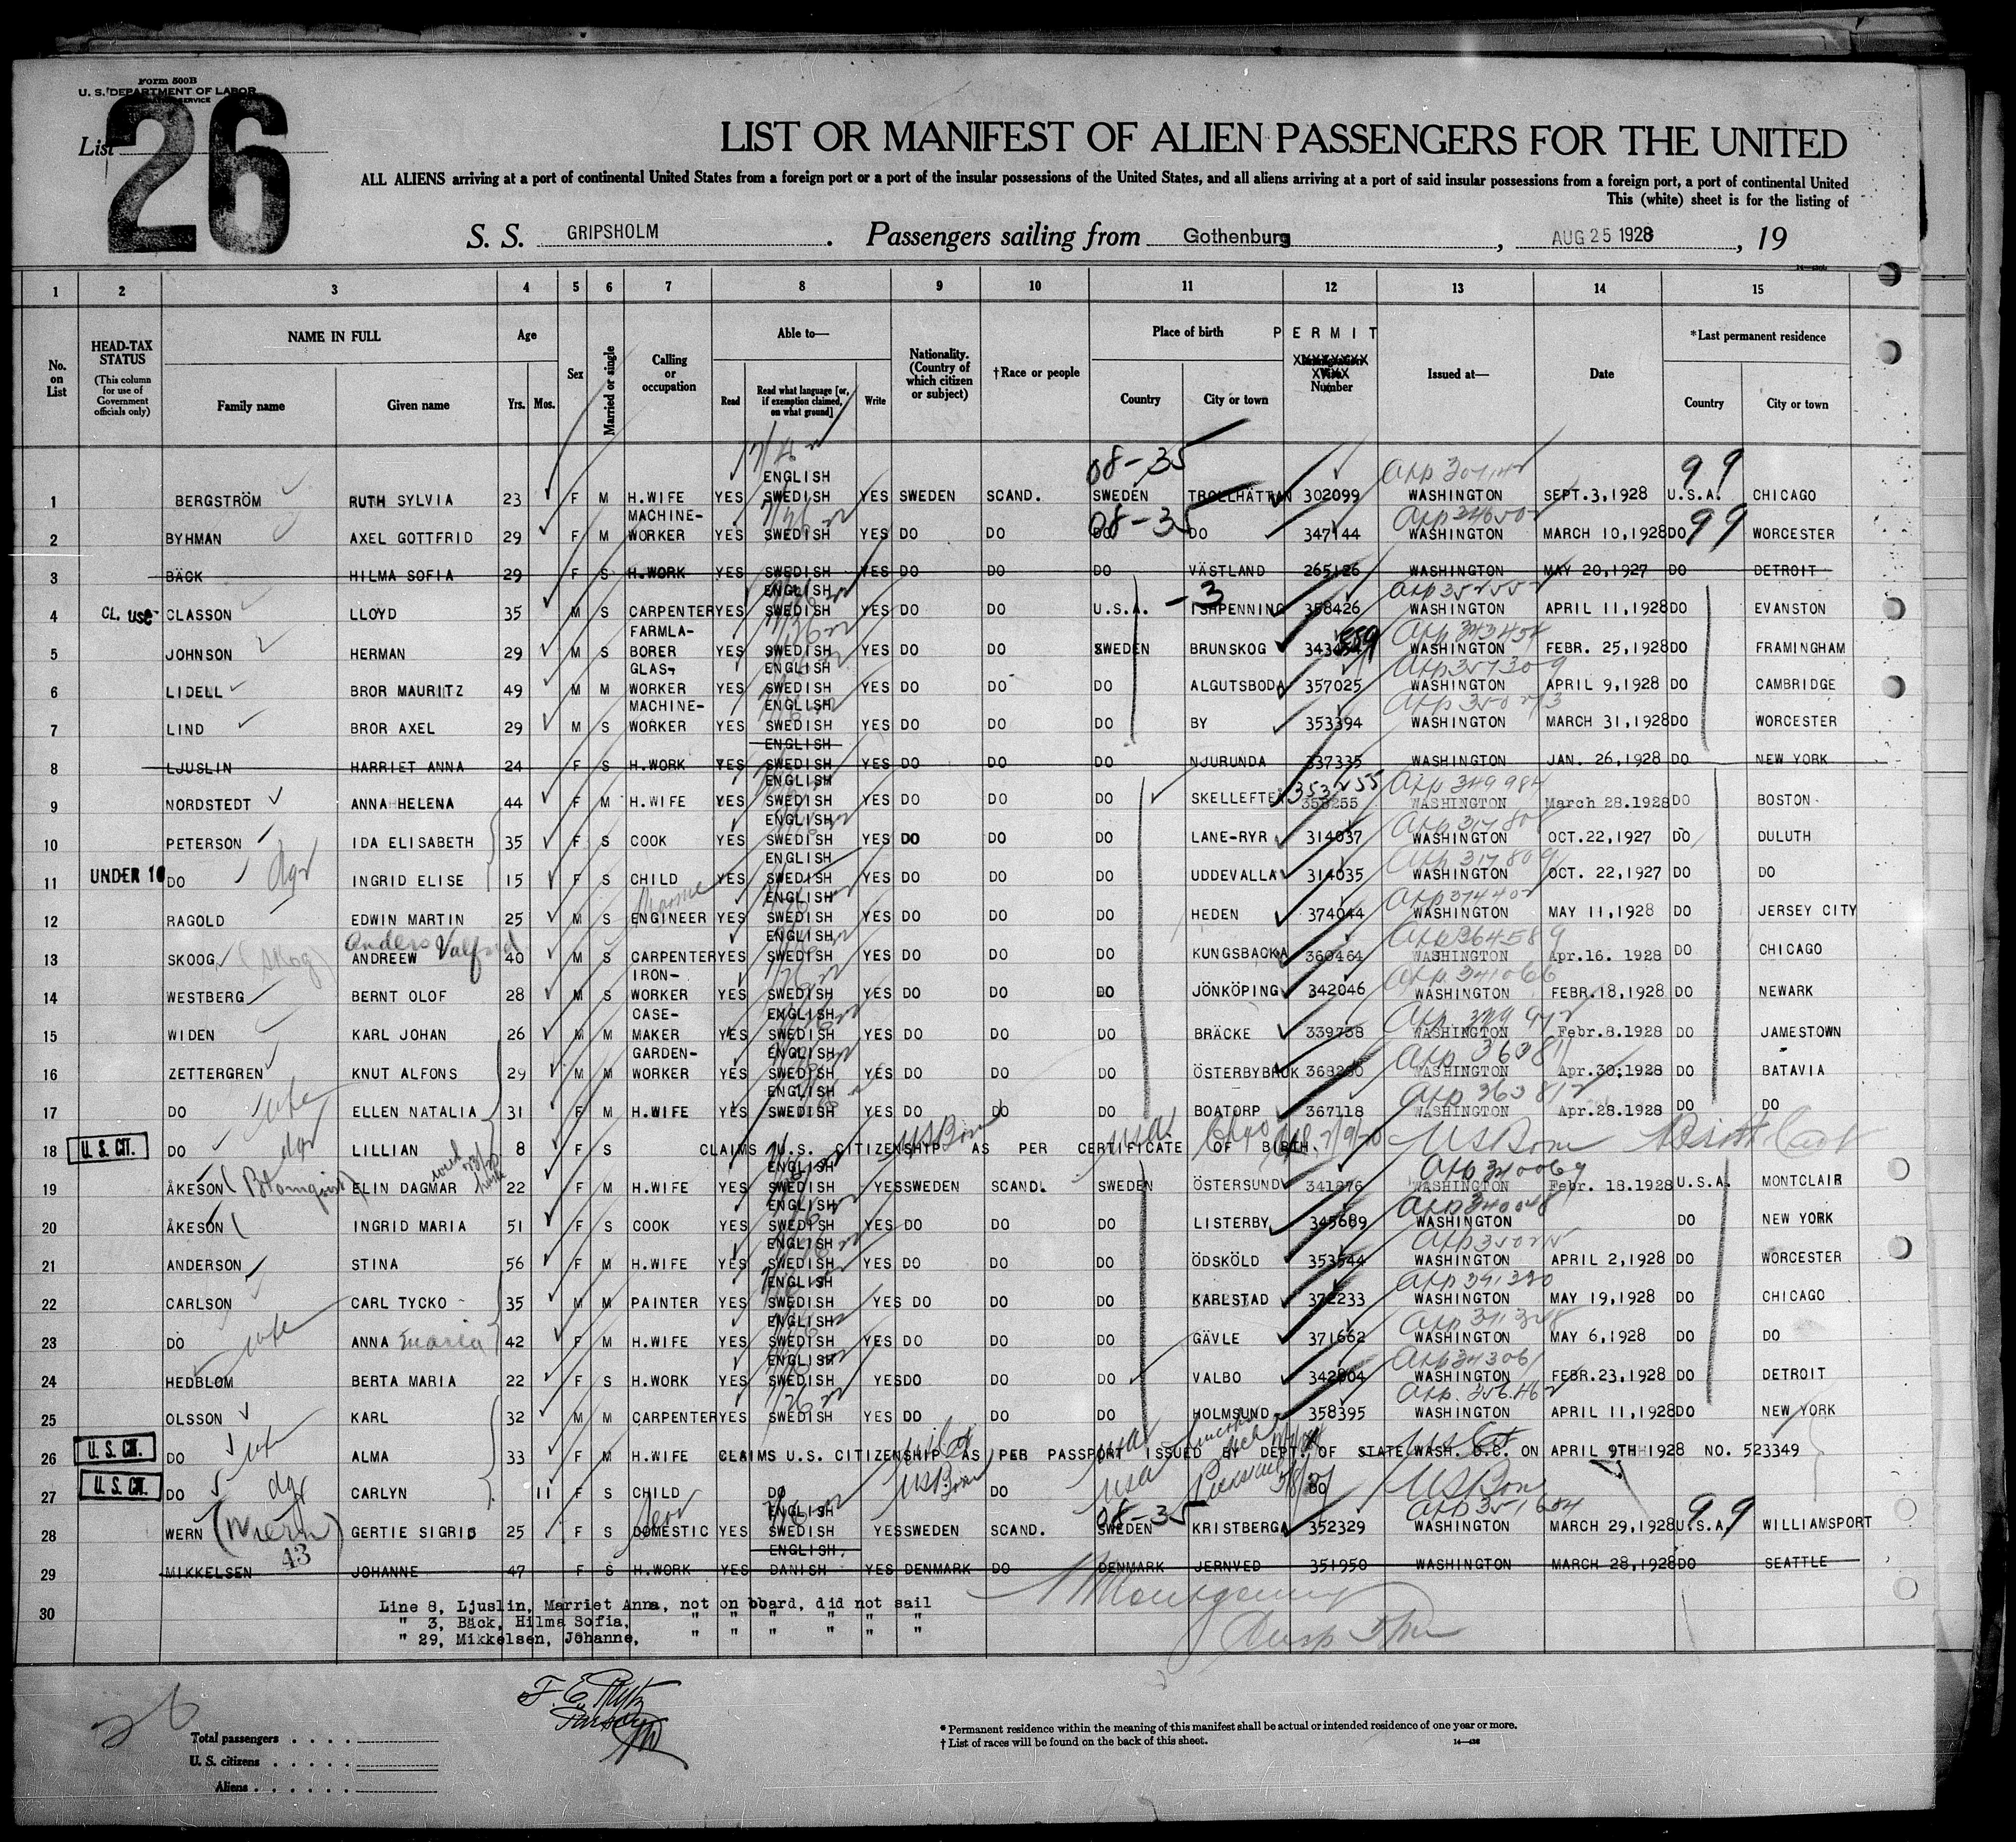 Form 500B
U. S. DEPARTMENT OF LABOR
SERVICE
List 26
LIST OR MANIFEST OF ALIEN PASSENGERS FOR THE UNITED
ALL ALIENS arriving at a port of continental United States from a foreign port or a port of the insular possessions of the United States, and all aliens arriving at a port of said insular possessions from a foreign port, a port of continental United
This (white) sheet is for the listing of
S. S. GRIPSHOLM. Passengers sailing from Gothenburg, AUG 25 1928, 19
1 2 3 4 5 6 7 8 9 10 11 12 13 14 15
No. on List
HEAD-TAX STATUS (This column for use of Government officials only)
NAME IN FULL Family name Given name
Age Yrs. Mos.
Sex
Married or single
Calling or occupation
Able to— Read Read what language [or, if exemption claimed, on what ground] Write
Nationality. (Country of which citizen or subject)
†Race or people
Place of birth Country City or town
PERMIT Number
Issued at—
Date
*Last permanent residence Country City or town
1 BERGSTRÖM RUTH SYLVIA 23 F M H.WIFE YES ENGLISH SWEDISH YES SWEDEN SCAND. 08-35 SWEDEN TROLLHÄTTAN 302099 WASHINGTON SEPT.3,1928 99 U.S.A. CHICAGO
2 BYHMAN AXEL GOTTFRID 29 F M MACHINE-WORKER YES SWEDISH YES DO DO 08-35 DO DO 347144 WASHINGTON MARCH 10,1928 DO 99 WORCESTER
3 BÄCK HILMA SOFIA 29 F S H.WORK YES SWEDISH YES DO DO DO VÄSTLAND 265126 WASHINGTON MAY 20,1927 DO DETROIT
4 CL. USE CLASSON LLOYD 35 M S CARPENTER YES ENGLISH SWEDISH YES DO DO U.S.A. -3 ISHPENNING 358426 WASHINGTON APRIL 11,1928 DO EVANSTON
5 JOHNSON HERMAN 29 M S FARMLA-BORER YES SWEDISH YES DO DO SWEDEN BRUNSKOG WASHINGTON FEBR. 25,1928 DO FRAMINGHAM
6 LIDELL BROR MAURITZ 49 M M GLAS-WORKER YES ENGLISH SWEDISH YES DO DO DO ALGUTSBODA 357025 WASHINGTON APRIL 9,1928 DO CAMBRIDGE
7 LIND BROR AXEL 29 M S MACHINE-WORKER YES ENGLISH SWEDISH YES DO DO DO BY 353394 WASHINGTON MARCH 31,1928 DO WORCESTER
8 LJUSLIN HARRIET ANNA 24 F S H.WORK YES ENGLISH SWEDISH YES DO DO DO NJURUNDA 337335 WASHINGTON JAN. 26,1928 DO NEW YORK
9 NORDSTEDT ANNA HELENA 44 F M H.WIFE YES ENGLISH SWEDISH YES DO DO DO SKELLEFTEÅ 353255 WASHINGTON March 28.1928 DO BOSTON
10 PETERSON IDA ELISABETH 35 F S COOK YES ENGLISH SWEDISH YES DO DO DO LANE-RYR 314037 WASHINGTON OCT.22,1927 DO DULUTH
11 UNDER 16 DO dgr INGRID ELISE 15 F S CHILD YES ENGLISH SWEDISH YES DO DO DO UDDEVALLA 314035 WASHINGTON OCT. 22,1927 DO DO
12 RAGOLD EDWIN MARTIN 25 M S ENGINEER YES ENGLISH SWEDISH YES DO DO DO HEDEN 374044 WASHINGTON MAY 11,1928 DO JERSEY CITY
13 SKOOG (Skog) Anders Valfrid ANDREEW 40 M S CARPENTER YES ENGLISH SWEDISH YES DO DO DO KUNGSBACKA 360464 WASHINGTON Apr.16. 1928 DO CHICAGO
14 WESTBERG BERNT OLOF 28 M S IRON-WORKER YES SWEDISH YES DO DO DO JÖNKÖPING 342046 WASHINGTON FEBR.18,1928 DO NEWARK
15 WIDEN KARL JOHAN 26 M M CASE-MAKER YES ENGLISH SWEDISH YES DO DO DO BRÄCKE 339738 WASHINGTON Febr.8.1928 DO JAMESTOWN
16 ZETTERGREN KNUT ALFONS 29 M M GARDEN-WORKER YES ENGLISH SWEDISH YES DO DO DO ÖSTERBYBRUK WASHINGTON Apr.30,1928 DO BATAVIA
17 DO wife ELLEN NATALIA 31 F M H.WIFE YES ENGLISH SWEDISH YES DO DO DO BOATORP 367118 WASHINGTON Apr.28.1928 DO DO
18 U. S. CIT. DO dgr LILLIAN 8 F S CLAIMS U.S. CITIZENSHIP AS PER CERTIFICATE OF BIRTH. US Born
19 ÅKESON (Blomqvist) ELIN DAGMAR 22 F M H.WIFE YES ENGLISH SWEDISH YES SWEDEN SCAND. SWEDEN ÖSTERSUND 341876 WASHINGTON Febr. 18.1928 U.S.A. MONTCLAIR
20 ÅKESON INGRID MARIA 51 F S COOK YES ENGLISH SWEDISH YES DO DO DO LISTERBY 345689 WASHINGTON DO NEW YORK
21 ANDERSON STINA 56 F M H.WIFE YES ENGLISH SWEDISH YES DO DO DO ÖDSKÖLD 353544 WASHINGTON APRIL 2,1928 DO WORCESTER
22 CARLSON CARL TYCKO 35 M M PAINTER YES ENGLISH SWEDISH YES DO DO DO KARLSTAD 372233 WASHINGTON MAY 19,1928 DO CHICAGO
23 DO wife ANNA Maria 42 F M H.WIFE YES ENGLISH SWEDISH YES DO DO DO GÄVLE 371662 WASHINGTON MAY 6,1928 DO DO
24 HEDBLOM BERTA MARIA 22 F S H.WORK YES ENGLISH SWEDISH YES DO DO DO VALBO 342804 WASHINGTON FEBR.23,1928 DO DETROIT
25 OLSSON KARL 32 M M CARPENTER YES SWEDISH YES DO DO DO HOLMSUND 358395 WASHINGTON APRIL 11,1928 DO NEW YORK
26 U. S. CIT. DO wife ALMA 33 F M H.WIFE CLAIMS U.S. CITIZENSHIP AS PER PASSPORT ISSUED BY DEPT. OF STATE WASH. D.C. ON APRIL 9TH 1928 NO. 523349
27 U. S. CIT. DO dgr CARLYN 11 F S CHILD DO US Born DO USA DO US Born
28 WERN GERTIE SIGRID 25 F S DOMESTIC YES ENGLISH SWEDISH YES SWEDEN SCAND. 08-35 SWEDEN KRISTBERGA 352329 WASHINGTON MARCH 29,1928 99 U.S.A. WILLIAMSPORT
29 MIKKELSEN 43 JOHANNE 47 F S H.WORK YES ENGLISH. DANISH YES DENMARK DO DENMARK JERNVED 351950 WASHINGTON MARCH 28,1928 DO SEATTLE
30 Line 8, Ljuslin, Marriet Anna, not on bboard, did not sail
" 3, Bäck, Hilma Sofia, " " " " " "
" 29, Mikkelsen, Johanne, " " " " " "
Montgomery
26
Total passengers
U. S. citizens
Aliens
* Permanent residence within the meaning of this manifest shall be actual or intended residence of one year or more.
† List of races will be found on the back of this sheet.